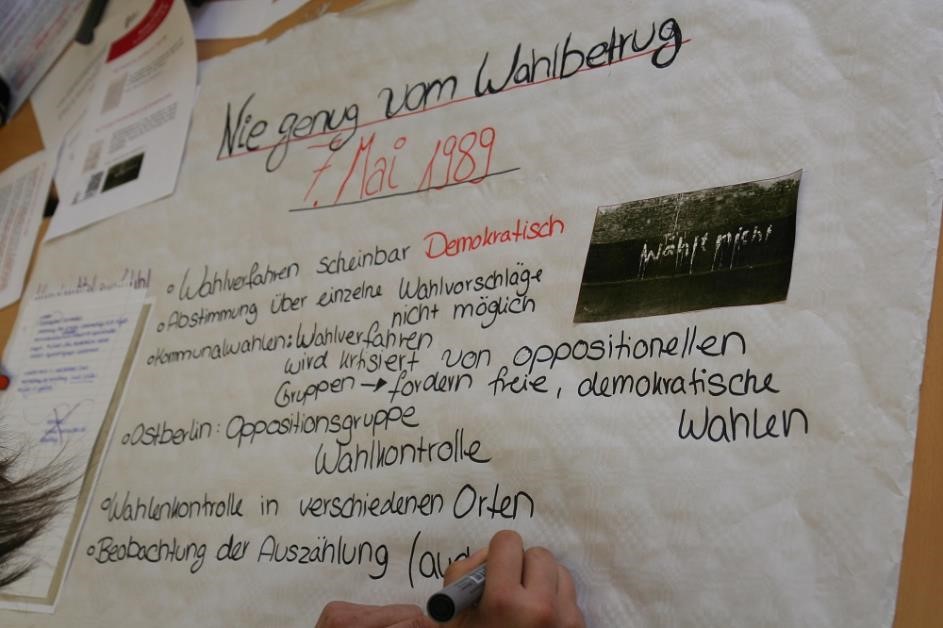 Nie genug vom Wahlbetrug
7. Mai 1989
Wahlverfahren scheinbar Demokratisch
Abstimmung über einzelne Wahlvorschläge
nicht möglich
Kommunalwahlen: Wahlverfahren
wird kritisiert von oppositionellen
Gruppen → fordern freie, demokratische
Wahlen
Ostberlin: Oppositionsgruppe
Wahlkontrolle
Wahlenkontrolle in verschiedenen Orten
Beobachtung der Auszählung (auc
Wählt nicht